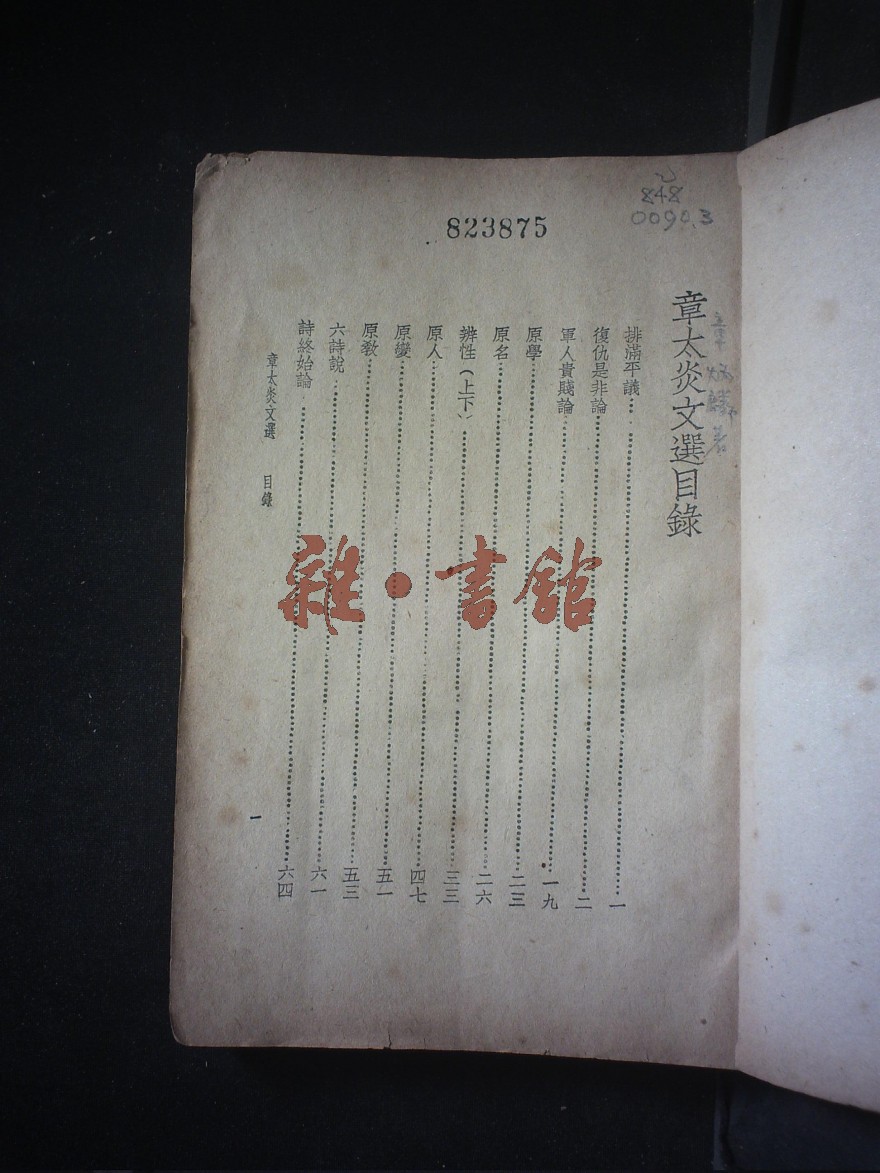 848
0090.3
823875
章炳麟著
章太炎文選目錄
排滿平議……一
復仇是非論……二
軍人貴賤論……一九
原學……二三
原名……二六
辨性(上下)……三三
原人……四七
原變……五一
原教……五三
六詩說……六一
詩終始論……六四
章太炎文選 目錄
一
雜·書館